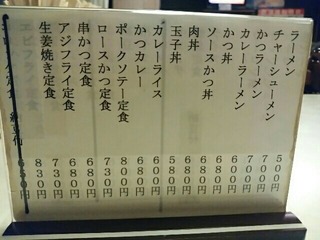 ラーメン 500円
チャーシューメン 700円
かつラーメン 700円
カレーラーメン 600円
かつ丼 680円
ソースかつ丼 680円
肉丼 680円
玉子丼 580円
カレーライス 600円
かつカレー 800円
ポークソテー定食 800円
ロースかつ定食 730円
串かつ定食 680円
アジフライ定食 730円
生姜焼き定食 830円
650円